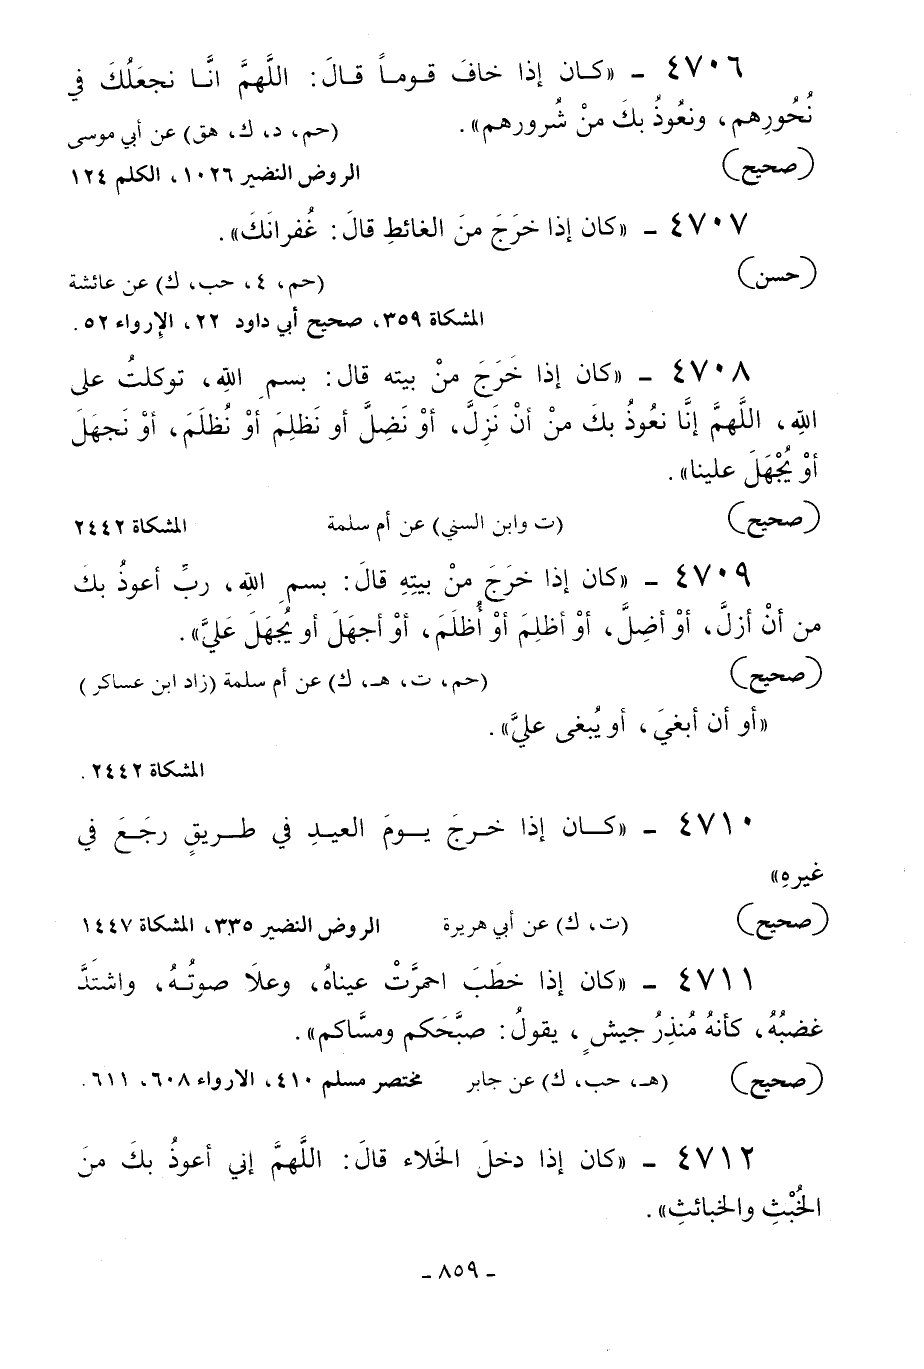 ٤٧٠٦ ـ «كـان إذا خافَ قـومـاً قـالَ: اللَّهمَّ انَّـا نجعَلُكَ في
نُحُورِهم، ونعُوذُ بكَ منْ شُرورهم».
(حم، د، ك، هق) عن أبي موسى
(صحيح)
الروض النضير ١٠٢٦، الكلم ١٢٤
٤٧٠٧ ـ «كان إذا خرَجَ منَ الغائطِ قالَ: غُفرانَكَ».
(حسن)
(حم، ٤، حب، ك) عن عائشة
المشكاة ٣٥٩، صحيح أبي داود ٢٢، الإرواء ٥٢.
٤٧٠٨ ـ «كان إذا خَرَجَ منْ بيته قال: بسمِ اللهِ، توكلتُ على
اللهِ، اللَّهمَّ إنَّا نعُوذُ بكَ منْ أنْ نَزِلَّ، أوْ نَضِلَّ أو نَظلِمَ أوْ نُظلَمَ، أوْ نَجهَلَ
أوْ يُجْهَلَ علينا».
(صحيح)
(ت وابن السني) عن أم سلمة
المشكاة ٢٤٤٢
٤٧٠٩ ـ «كان إذا خرَجَ منْ بيتِهِ قالَ: بسمِ اللهِ، ربِّ أعوذُ بكَ
من أنْ أزلَّ، أوْ أضِلَّ، أوْ أظلِمَ أوْ أُظلَمَ، أوْ أجهَلَ أو يُجهَلَ عَليَّ».
(صحيح)
(حم، ت، هـ، ك) عن أم سلمة (زاد ابن عساكر)
«أو أن أبغيَ، أو يُبغى عليَّ».
المشكاة ٢٤٤٢.
٤٧١٠ ـ «كـــان إذا خـرجَ يــومَ العيـدِ في طـريقٍ رجَـعَ في
غيرهِ»
(صحيح)
(ت، ك) عن أبي هريرة
الروض النضير ٣٣٥، المشكاة ١٤٤٧
٤٧١١ ـ «كان إذا خطَبَ احمرَّتْ عيناهُ، وعلَا صوتُـهُ، واشتَدَّ
غضبُهُ، كأنهُ مُنذِرُ جيشٍ، يقولُ: صبَّحَكم ومسَّاكم».
(صحيح)
(هـ، حب، ك) عن جابر
مختصر مسلم ٤١٠، الارواء ٦٠٨، ٦١١.
٤٧١٢ ـ «كان إذا دخلَ الخَلاء قالَ: اللَّهمَّ إني أعوذُ بكَ منَ
الخُبْثِ والخبائثِ».
ـ ٨٥٩ ـ